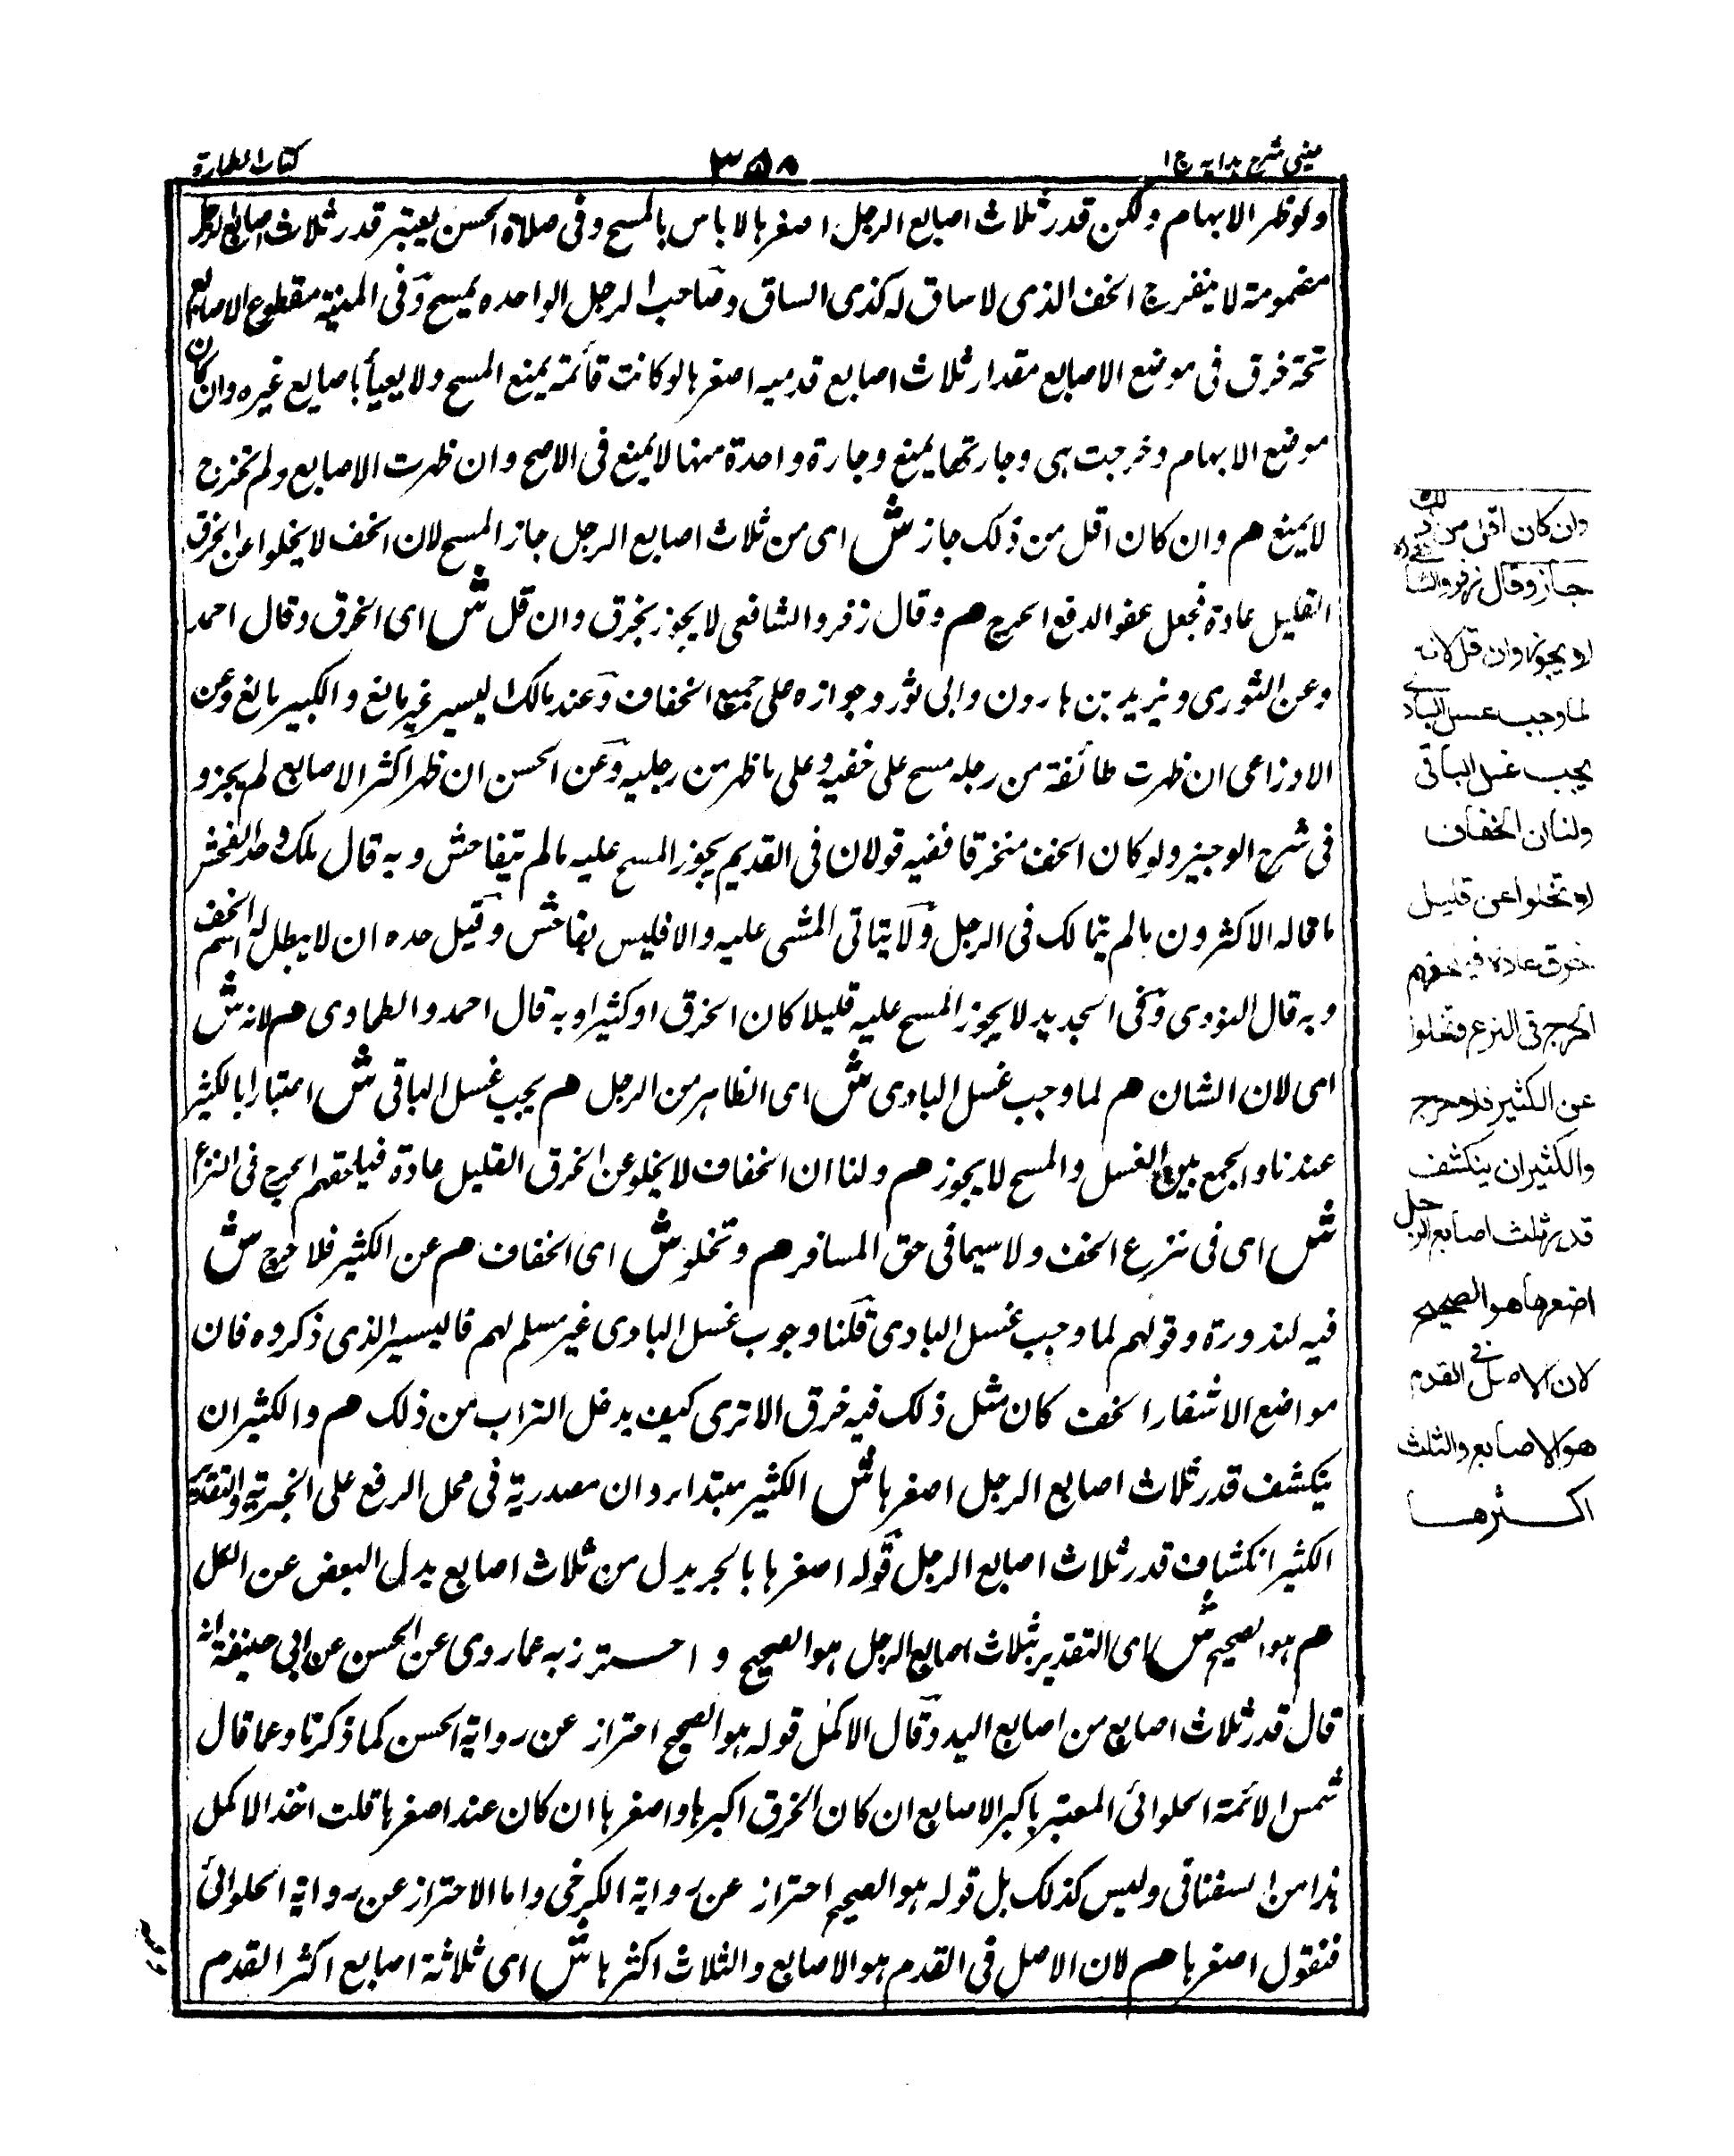 عينى شرح هدايه ج ١
٣٥٨
كتاب الطهارة
ولو ظهر الابهام ولكن قدر ثلاث اصابع الرجل اصغرها لا باس بالمسح وفى صلاة الحسن يعتبر قدر ثلاث اصابع الرجل
مضمومة لا ينفرج الخف الذى لا ساق له كذى الساق وصاحب الرجل الواحده يمسح وفى المنية مقطوع الاصابع
تحته خرق فى موضع الاصابع مقدار ثلاث اصابع قدميه اصغرها لو كانت قائمة يمنع المسح ولا يعبأ باصابع غيره وان كان
موضع الابهام وخرجت هى وجارتها يمنع وجارة واحدة منها لا يمنع فى الاصح وان ظهرت الاصابع ولم تخرج
لا يمنع هم وان كان اقل من ذلك جاز ش اى من ثلاث اصابع الرجل جاز المسح لان الخف لا يخلوا عن الخرق
القليل عادة فجعل عفوا لدفع الحرج هم وقال زفر والشافعى لا يجوز بخرق وان قل ش اى الخرق وقال احمد
وعن الثورى ويزيد بن هارون وابى ثور وجوازه على جميع الخفاف وعند مالك اليسير غير مانع والكبير مانع وعن
الاوزاعى ان ظهرت طائفة من رجله مسح على خفيه وعلى ما ظهر من رجليه وعن الحسن ان ظهر اكثر الاصابع لم يجز و
فى شرح الوجيز ولو كان الخف منخرقا ففيه قولان فى القديم يجوز المسح عليه ما لم يتفاحش وبه قال ملك وحد الفحش
ما قاله الاكثرون ما لم يتمالك فى الرجل ولا يتاتى المشى عليه والا فليس بفاحش وقيل حده ان لا يبطل له اسم الخف
وبه قال النووى وفى الجديد لا يجوز المسح عليه قليلا كان الخرق او كثيرا وبه قال احمد والطحاوى هم لانه ش
اى لان الشان هم لما وجب غسل البادى ش اى الظاهر من الرجل هم يجب غسل الباقى ش اعتبارا بالكثير
عندنا والجمع بين الغسل والمسح لا يجوز هم ولنا ان الخفاف لا يخلو عن الخرق القليل عادة فيلحقهم الحرج فى النزع
ش اى فى نزع الخف ولا سيما فى حق المسافر هم وتخلو ش اى الخفاف هم عن الكثير فلا حرج ش
فيه لندورة وقولهم لما وجب غسل البادى قلنا وجوب غسل البادى غير مسلم لهم فاليسير الذى ذكروه فان
مواضع الاشفار الخف كان مثل ذلك فيه خرق الا ترى كيف يدخل التراب من ذلك هم والكثير ان
ينكشف قدر ثلاث اصابع الرجل اصغرها ش الكثير مبتداء وان مصدرية فى محل الرفع على الخبرية والتقدير
الكثير انكشاف قدر ثلاث اصابع الرجل قوله اصغرها بالجر بدل من ثلاث اصابع بدل البعض عن الكل
هم هو الصحيح ش اى التقدير بثلاث اصابع الرجل هو الصحيح واحترز به عما روى عن الحسن عن ابى حنيفة انه
قال قدر ثلاث اصابع من اصابع اليد وقال الاكمل قوله هو الصحيح احتراز عن رواية الحسن كما ذكرنا وعما قال
شمس الائمة الحلوائى المعتبر باكبر الاصابع ان كان الخرق اكبرها واصغرها ان كان عند اصغرها قلت اخذ الاكمل
هذا من السغناقى وليس كذلك بل قوله هو الصحيح احتراز عن رواية الكرخى واما الاحتراز عن رواية الحلوائى
فنقول اصغرها هم لان الاصل فى القدم هو الاصابع والثلاث اكثرها ش اى ثلاثة اصابع اكثر القدم
وان كان اقل من ذلك
جاز وقال زفر والشافعي
لا يجوز وان قل لانه
لما وجب غسل البادي
يجب غسل الباقي
ولنا ان الخفاف
لا تخلوا عن قليل
خرق عادة فيلحقهم
الحرج فى النزع وتخلوا
عن الكثير فلا حرج
والكثير ان ينكشف
قدر ثلث اصابع الرجل
اصغرها هو الصحيح
لان الاصل فى القدم
هو الاصابع والثلث
اكثرها